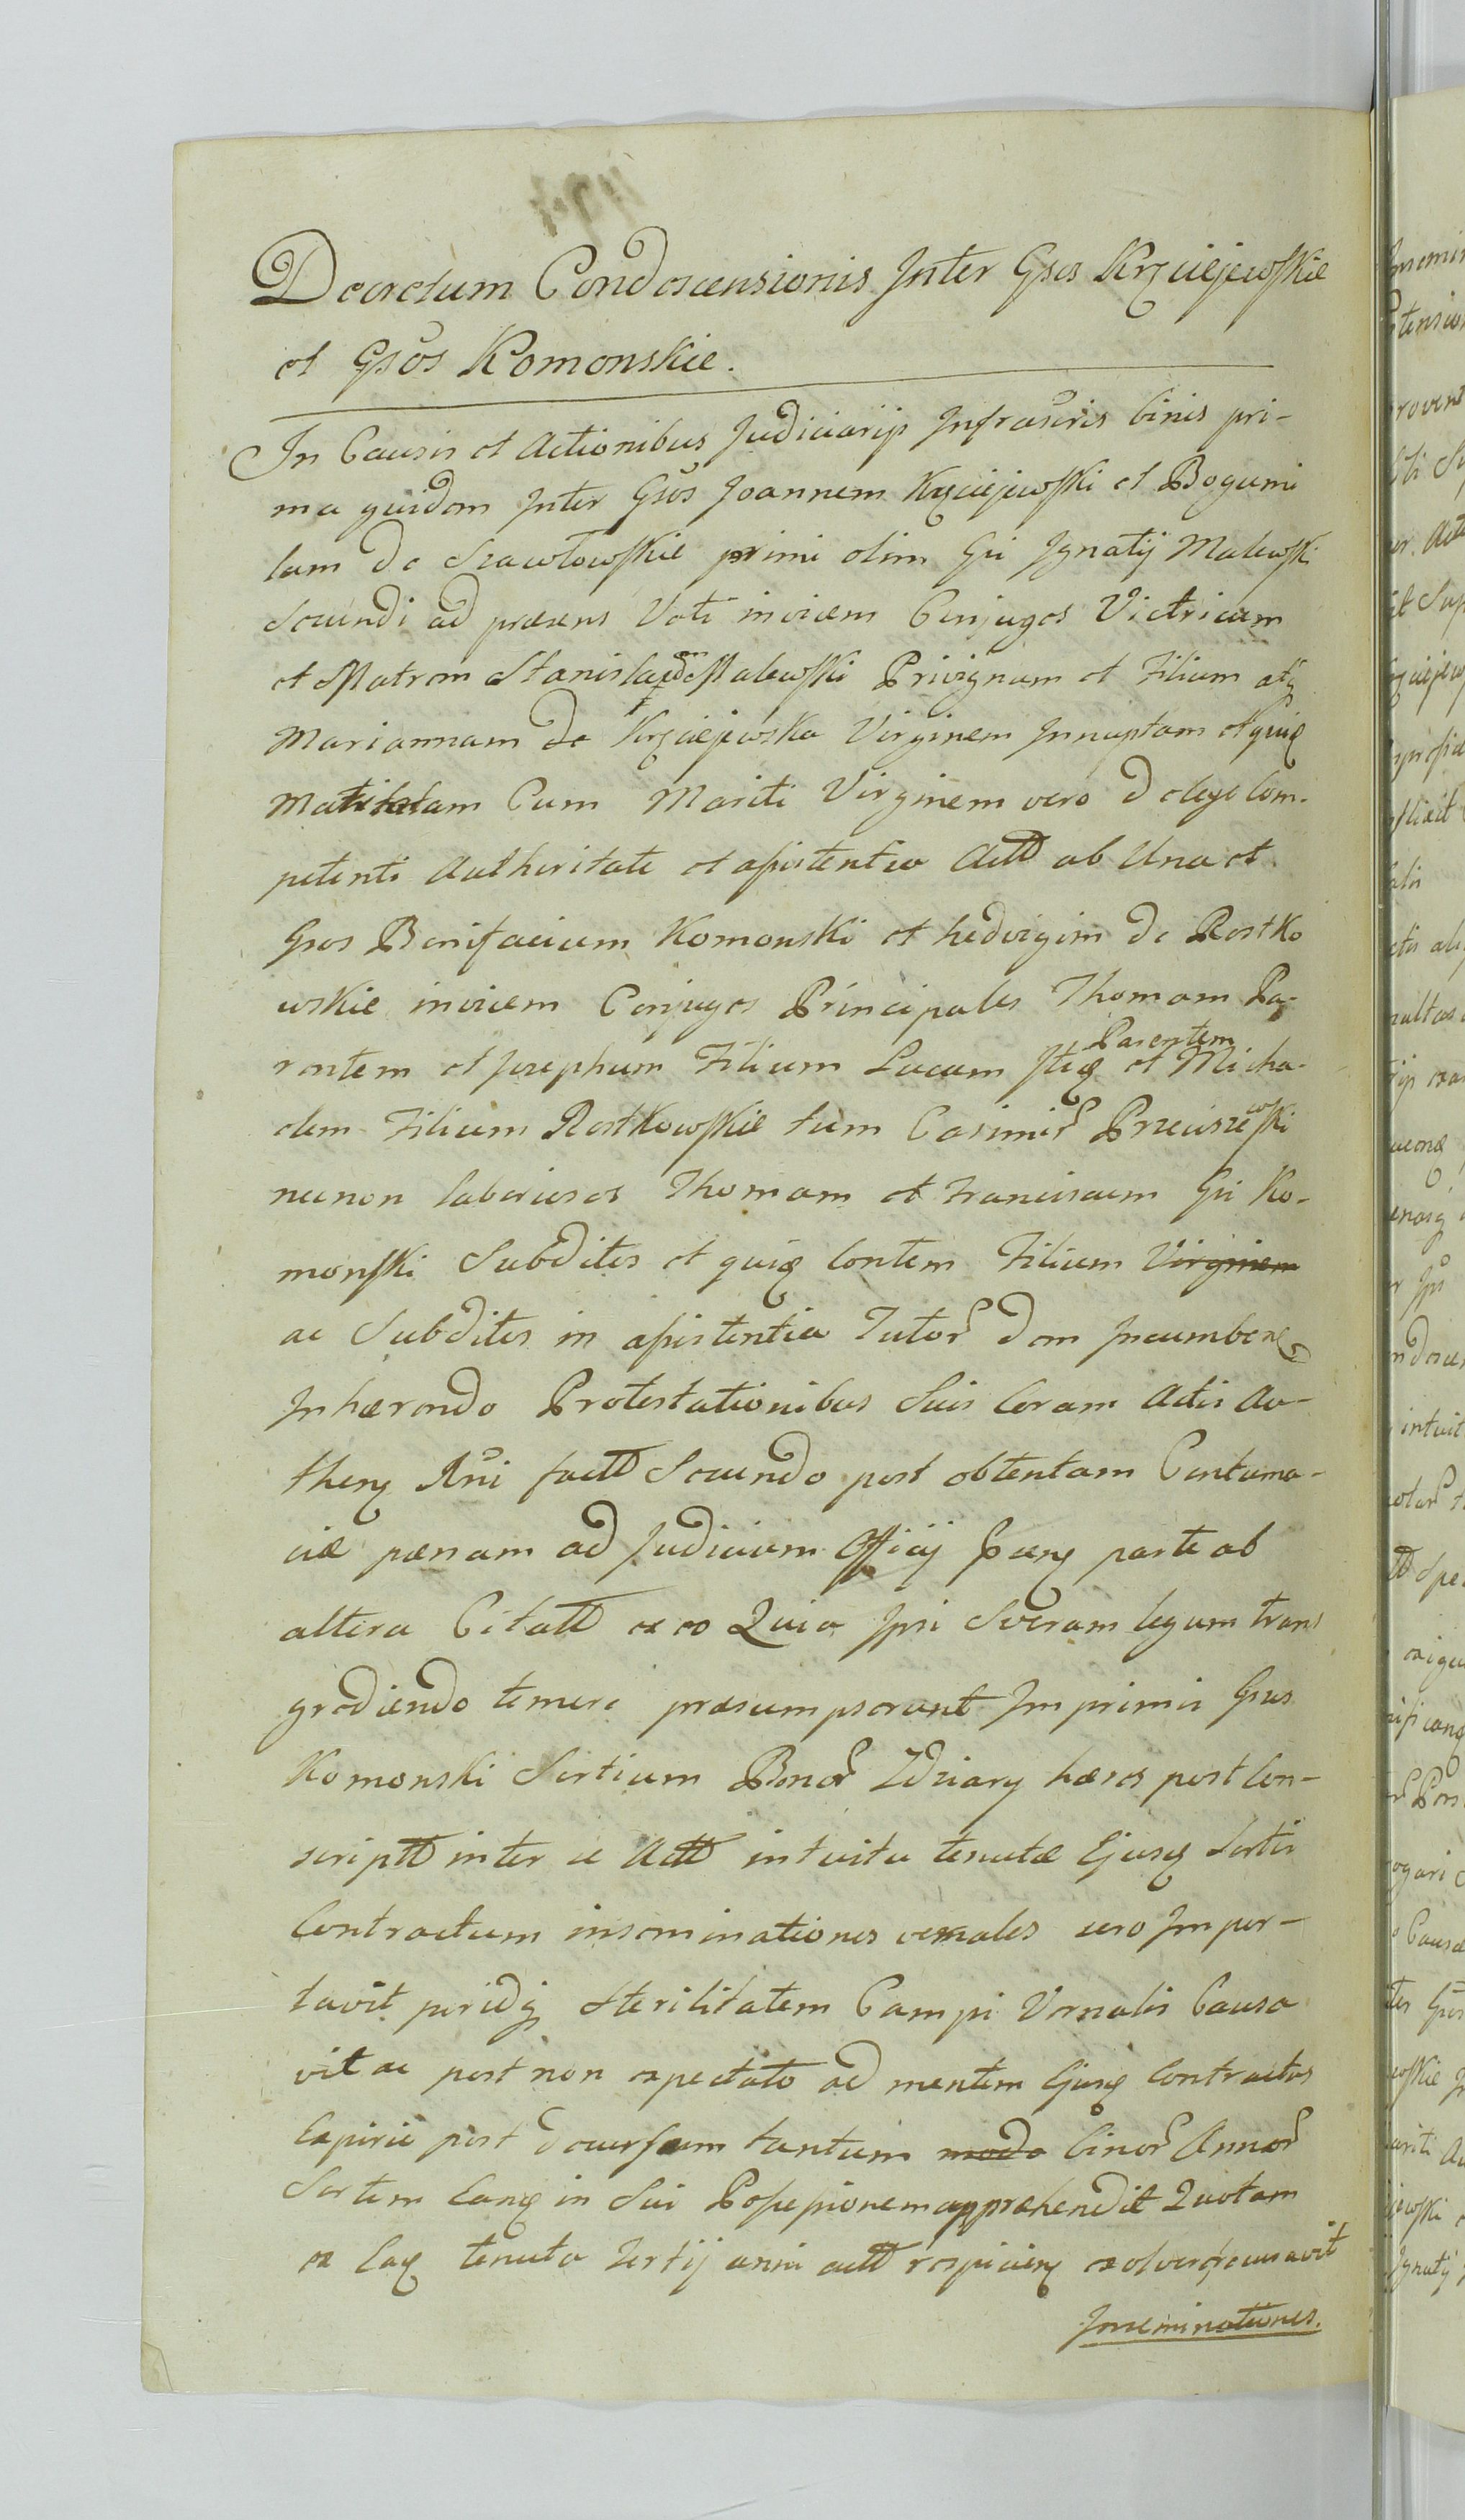 Decretum Condescensionis Inter Gsos Krzciejewskie
et Gsos Komonskie.
In Causis et Actionibus Judiciarijs Infrascris binis pri-
ma quidem Inter Gsos Joannem Krzciejewski et Bogumi
lam de Szawłowskie primi olim Gsi Ignatij Malewski
Secundi ad præsens Voti invicem Conjuges Victricum
et Matrem Stanislaum Malewski Privignum et Filium atq
Mariannam de Krzciejewska Virginem Innuptam et quiq
Maritatam Cum Mariti Virginem vero de lege Com-
petenti Authoritate et assistentia Actt ab Una et
Gsos Bonifacium Komonski et hedvigim de Rostko
wskie invicem Conjuges Principales Thomam Pa-
rentem et Josephum Filium Lucam Itiq Parentem et Micha-
elem Filium Rostkowskie tum Casimir Przeciszewski
necnon laboriosos Thomam et Franciscum Gsi Ko-
monski Subditos et quiq Contem Filium Virginem
ac Subditos in assistentia Tutor dem Incumben
Inhærendo Protestationibus Suis Coram Actis Au-
then Rni factt Secundo post obtentam Contuma-
ciæ pænam ad Judicium Officij pren parte ab
altera Citatt ex eo Quia Ipsi Severam legum trans
grediendo temere præsumpserunt Imprimis Gsus
Komonski Sortium Bonor Zdziary hæres post Con-
scriptt inter se Actt intuitu tenutæ Ejusq Sortis
Contractum inseminationes vernales sero Imper-
tavit peridq Sterilitatem Campi Vernalis Causa
vit ac post non expectato ad mentem Ejusq Contractus
Expirii post decursum tantum modo binor Annor
Sortem Eanq in Sui Possessionem apprehendit Quotam
ex Eaq tenuta Tertij anni actt respicien exolvere recusavit
Inseminationes.